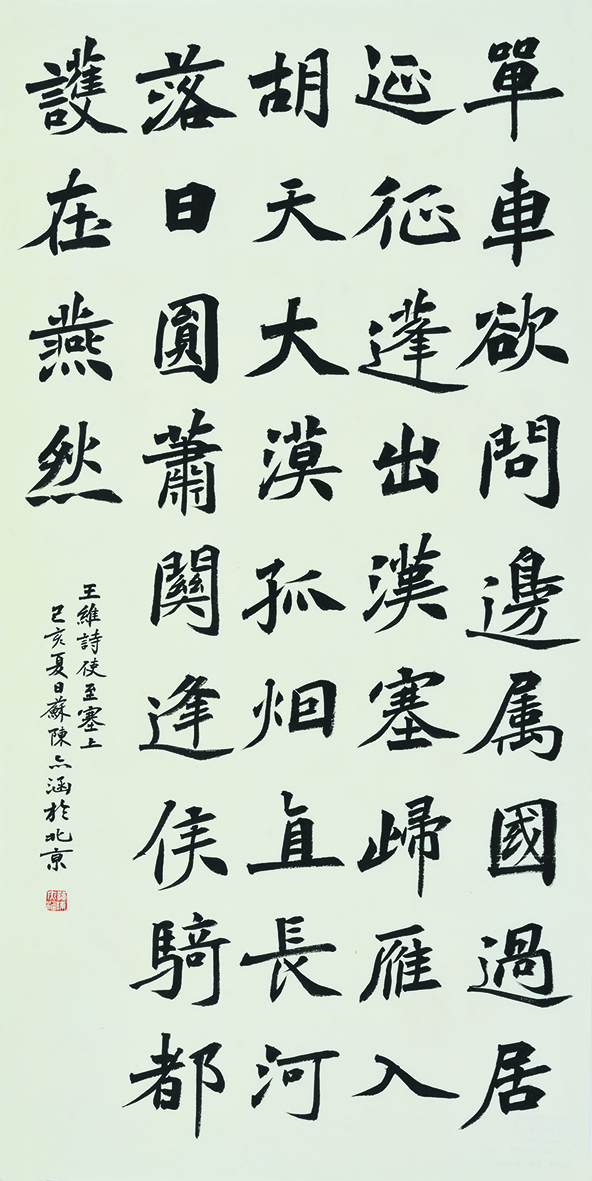 單車欲問邊属國過居
延征蓬出漢塞歸雁入
胡天大漠孤烟直長河
落日圓蕭關逢侯騎都
護在燕然
王維詩使至塞上
己亥夏日蘇陳亦涵於北京